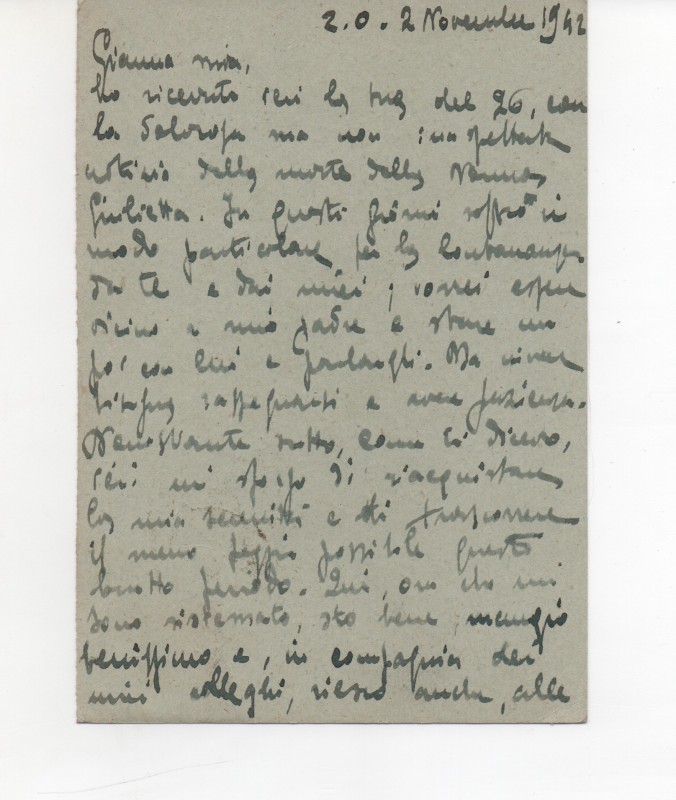 Z.O. 2 Novembre 1942
Gianna mia,
ho ricevuto ieri la tua del 26, con
la dolorosa ma non inaspettata
notizia della morte della Nonna
Giulietta. In questi giorni soffro in
modo particolare per la lontananza
da te e dai miei; vorrei essere
vicino a mio padre e stare un
po' con lui e parlargli. Ma invece
bisogna rassegnarsi e aver pazienza.
Nonostante tutto, come ti dicevo,
ieri mi sforzo di riacquistare
la mia serenità e di trascorrere
il meno peggio possibile questo
brutto periodo. Qui, ora che mi
sono sistemato, sto bene mangio
benissimo e, in compagnia dei
miei colleghi, riesco anche, alle